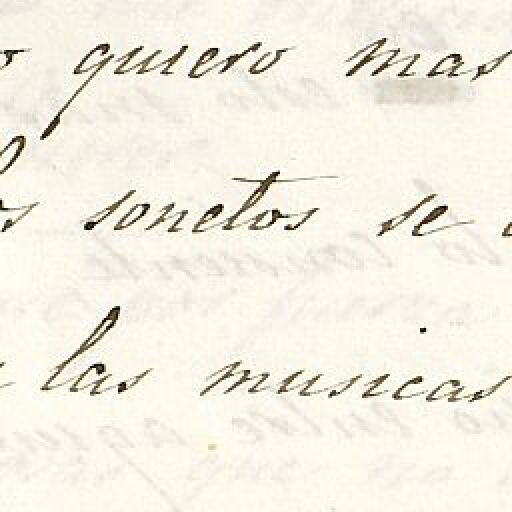 o quiero mas
os sonetos se
las musicas